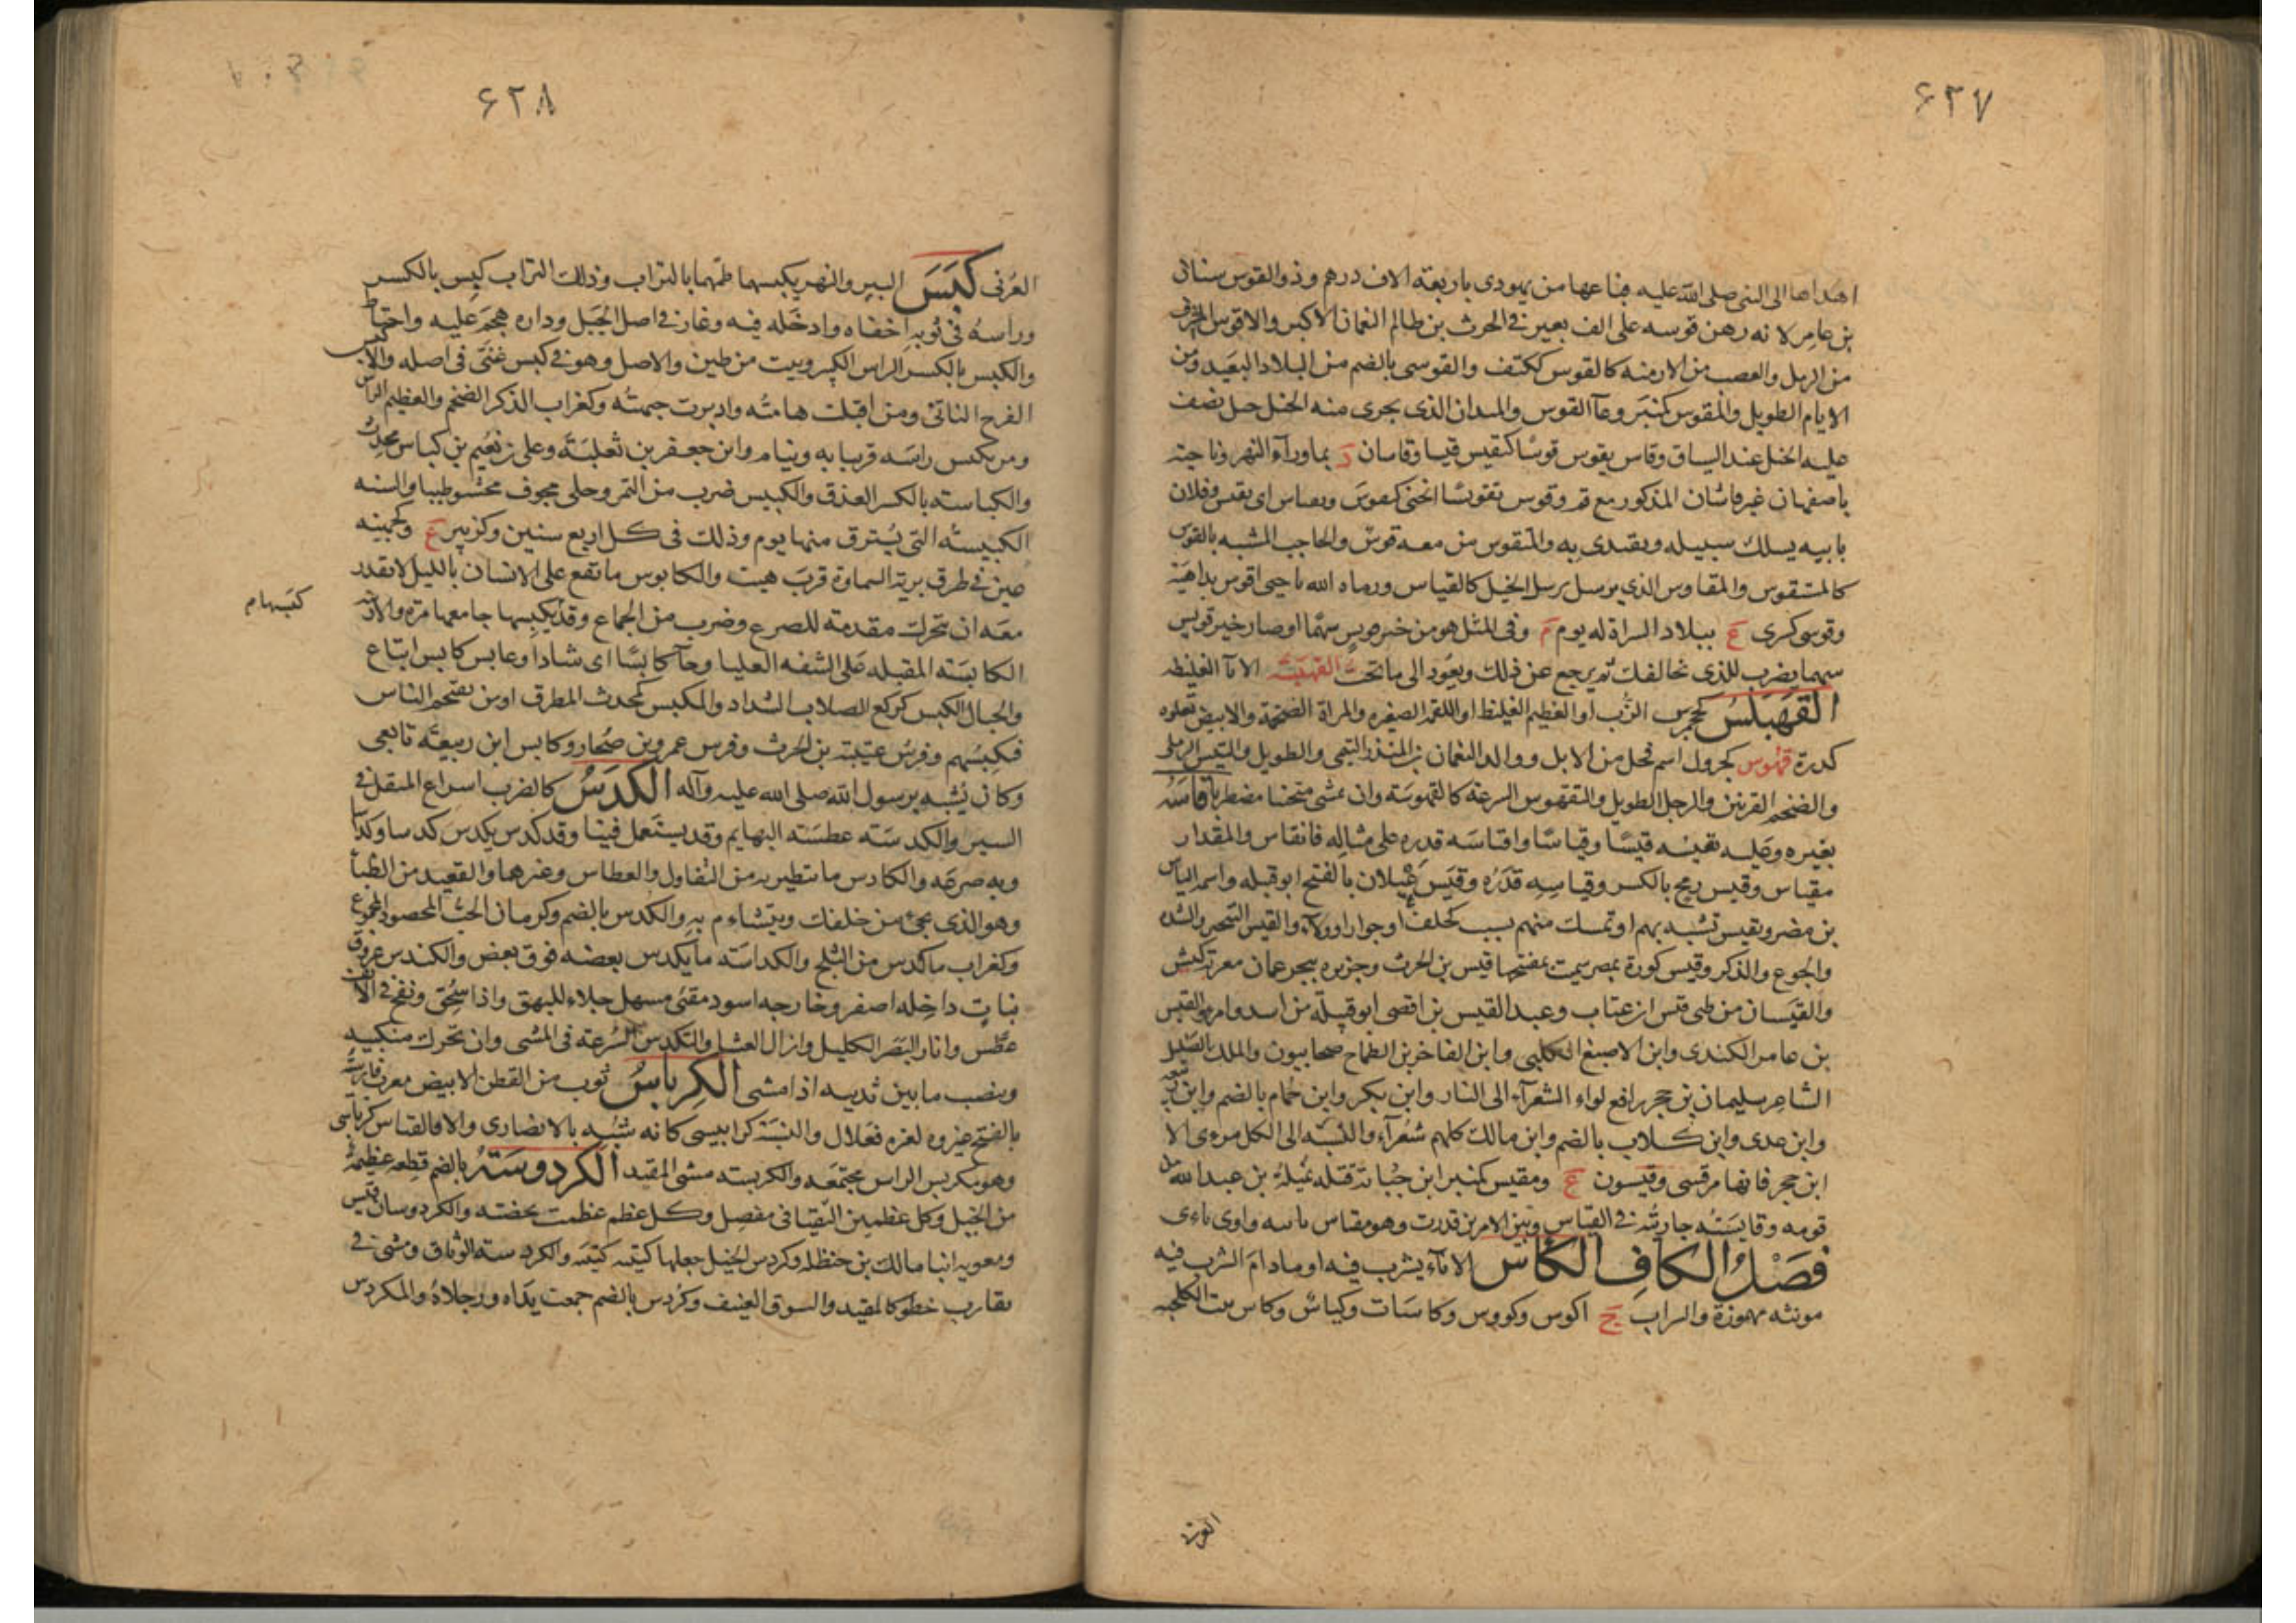 ۶۲۷
اهداها الى النبى صلى الله عليه فباعها من يهودى باربعة الاف درهم وذو القوس سنان
بن عامر لانه رهن قوسه على الف بعير فى الحرث بن ظالم النعمان الاكبر والاقوس المشرف
من الرمل والصعب من الازمنه كالقوس ككتف والقوسى بالضم من البلاد البعيد ومن
الايام الطويل والمقوس كمنبر وعآ القوس والميدان الذى يجرى منه الخيل حبل تصف
عليه الخيل عند السباق وقاس يقوس قوسًا كتقيس قيسا وقاسان د بماورآء النهر وناحية
باصفهان غير قاشان المذكور مع قم وقوس تقويسًا انحنى كتقوس ويقتاس اى يقيس وفلان
بابيه يسلك سبيله ويقتدى به والمتقوس من معه قوسٌ والحاجب المشبه بالقوس
كالمستقوس والمقاوس الذى يرسل الخيل كالقياس ورماه الله باحبى اقوس بداهية
وقوسى كسرى ع ببلاد السراة له يوم م وفى المثل هو من خير قويس سهمًا او صار خير قويس
سهما يضرب للذى يخالفك ثم يرجع عن ذلك ويعود الى ما تحب القهبسة الاتآ الغليظه
القهبلس كجحمرش الزب او العظيم الغليظ او القملة الصغيره والمراة الضخمة والابيض تعلوه
كدرة قهوس كجرول اسم فحل من الابل ووالد النعمان بن المنذر التيمى والطويل والتيس الرملى
والضخم القرنين والرجل الطويل والتقهوس السرعة كالقهوسة وان يمشى منحنيا مضطربا قاسه
بغيره وعليه يقيسه قيسًا وقياسًا واقتاسه قدره على مثاله فانقاس والمقدار
مقياس وقيس رمح بالكسر وقياسه قدَرُه وقيس عيلان بالفتح ابو قبيله واسمه الياس
بن مضر وتقيس تشبه بهم او تمسك منهم بسبب كحلف او جوار او ولاء والقيس التبختر والشده
والجوع والذكر وقيس كورة بمصر سميت بمفتتحها قيس بن الحرث وجزيره ببحر عمان معرب كيش
والقيسان من طى قيس بن عتاب وعبد القيس بن افصى ابو قبيلة من اسد وامرؤ القيس
بن عامر الكندى وابن الاصبغ الكلبى وابن الفاخر بن الطماح صحابيون والملك الضليل
الشاعر سليمان بن حجر رافع لواء الشعرآء الى النار وابن بكر وابن حُمام بالضم وابن
وابن عدى وابن كلاب بالضم وابن مالك كلهم شعرآء والنسبه الى الكل مرءى الا
ابن حجر فانها مرقسى وقيسون ع ومقيس كمنبر ابن حُبابة قتله نميلة بن عبد الله من
قومه وقايسته جاريته فى القياس وبين الامرين قدرت وهو مقتاس بابيه واوى ياءى
فصل الكاف الكاس الانآء يشرب فيه او مادام الشرب فيه
مونثه مهموزة والشراب ج اكوس وكووس وكاسات وكياسٌ وكاس بنت الكلحبه
العرنى
۶۲۸
العُرنى كبس البير والنهر يكبسهما طمهما بالتراب وذلك التراب كِبس بالكسر
وراسهُ فى ثوبه اخفاه وادخله فيه وغار فى اصل الجبل وداره هجم عليه واحتاط
والكبس بالكسر الراس الكبير وبيت من طين والاصل وهو فى كبس غنى فى اصله والاكبس
الفرج الناتئ ومن اقبلت هامته وادبرت جبهته وكغراب الذكر الضخم والعظيم الراس
ومن يكبس راسه فى ثيابه وينام وابن جعفر بن ثعلبة وعلى بن نعيم بن كباس محدث
والكباسته بالكسر العذق والكبيس ضرب من التمر وحلى مجوف محشو طيبا والسنه
الكبيسته التى يُسترق منها يوم وذلك فى كل اربع سنين وكزبير ع وكجهينه
عين فى طرف برية السماوة قرب هيت والكابوس ما تقع على الانسان بالليل لا يقدر
معه ان يتحرك مقدمة للصرع وضرب من الجماع وقد يكبسها جامعها مرة والارنبه
كبسها م
الكابسته المقبله على الشفه العليا وجآ كابسًا اى شادا وعابس كابس اتباع
والجبال الكبس كركع الصلاب الشداد والمكبس كمحدث المطرق او من يقتحم الناس
فيكبسهم وفرس عتيبة بن الحرث وفرس عمرو بن صُحار وكابس ابن ربيعه تابعى
وكان يُشبه برسول الله صلى الله عليه وآله الكدس كالضرب اسراع المثقل فى
السير والكدسته عطسته البهايم وقد يستعمل فينا وقد كدس يكدس كدسا وكداسا
وبه صرعه والكادس ما يتطير به من التفاول والعطاس وغيرها والقعيد من الظبآ
وهو الذى يجئ من خلفك ويتشاءم به والكدس بالضم وكرمان الحب المحصود المجموع
وكغراب ما كدس من الثلج والكداسة ما يكدس بعضه فوق بعض والكندس عروق
نبات داخله اصفر وخارجه اسود مقئ مسهل جلاء للبهق واذا سُحق ونفخ فى الانف
عطس وانار البصر الكليل وازال العشا والتكدس السرعته فى المشى وان تحرك منكبيه
وينصب ما بين ثدييه اذا مشى الكرباس ثوب من القطن الابيض معرب فارسيته
بالفتح غيروه لعزه فعلال والنسبة كرابيسى كانه شبه بالانصارى والا فالقياس كرباسى
وهو مكربس الراس مجتمعه والكربسته مشى المقيد الكردوسة بالضم قطعه عظيمة
من الخيل وكل عظمين التقيا فى مفصل وكل عظم عظمت نحضته والكردوسان قيس
ومعويه ابنا مالك بن حنظله وكردس الخيل جعلها كتيبه كتيبه والكردسته الوثاق ومشى فى
تقارب خطو كالمقيد والسوق العنيف وكردس بالضم جمعت يداه ورجلاه والمكردس